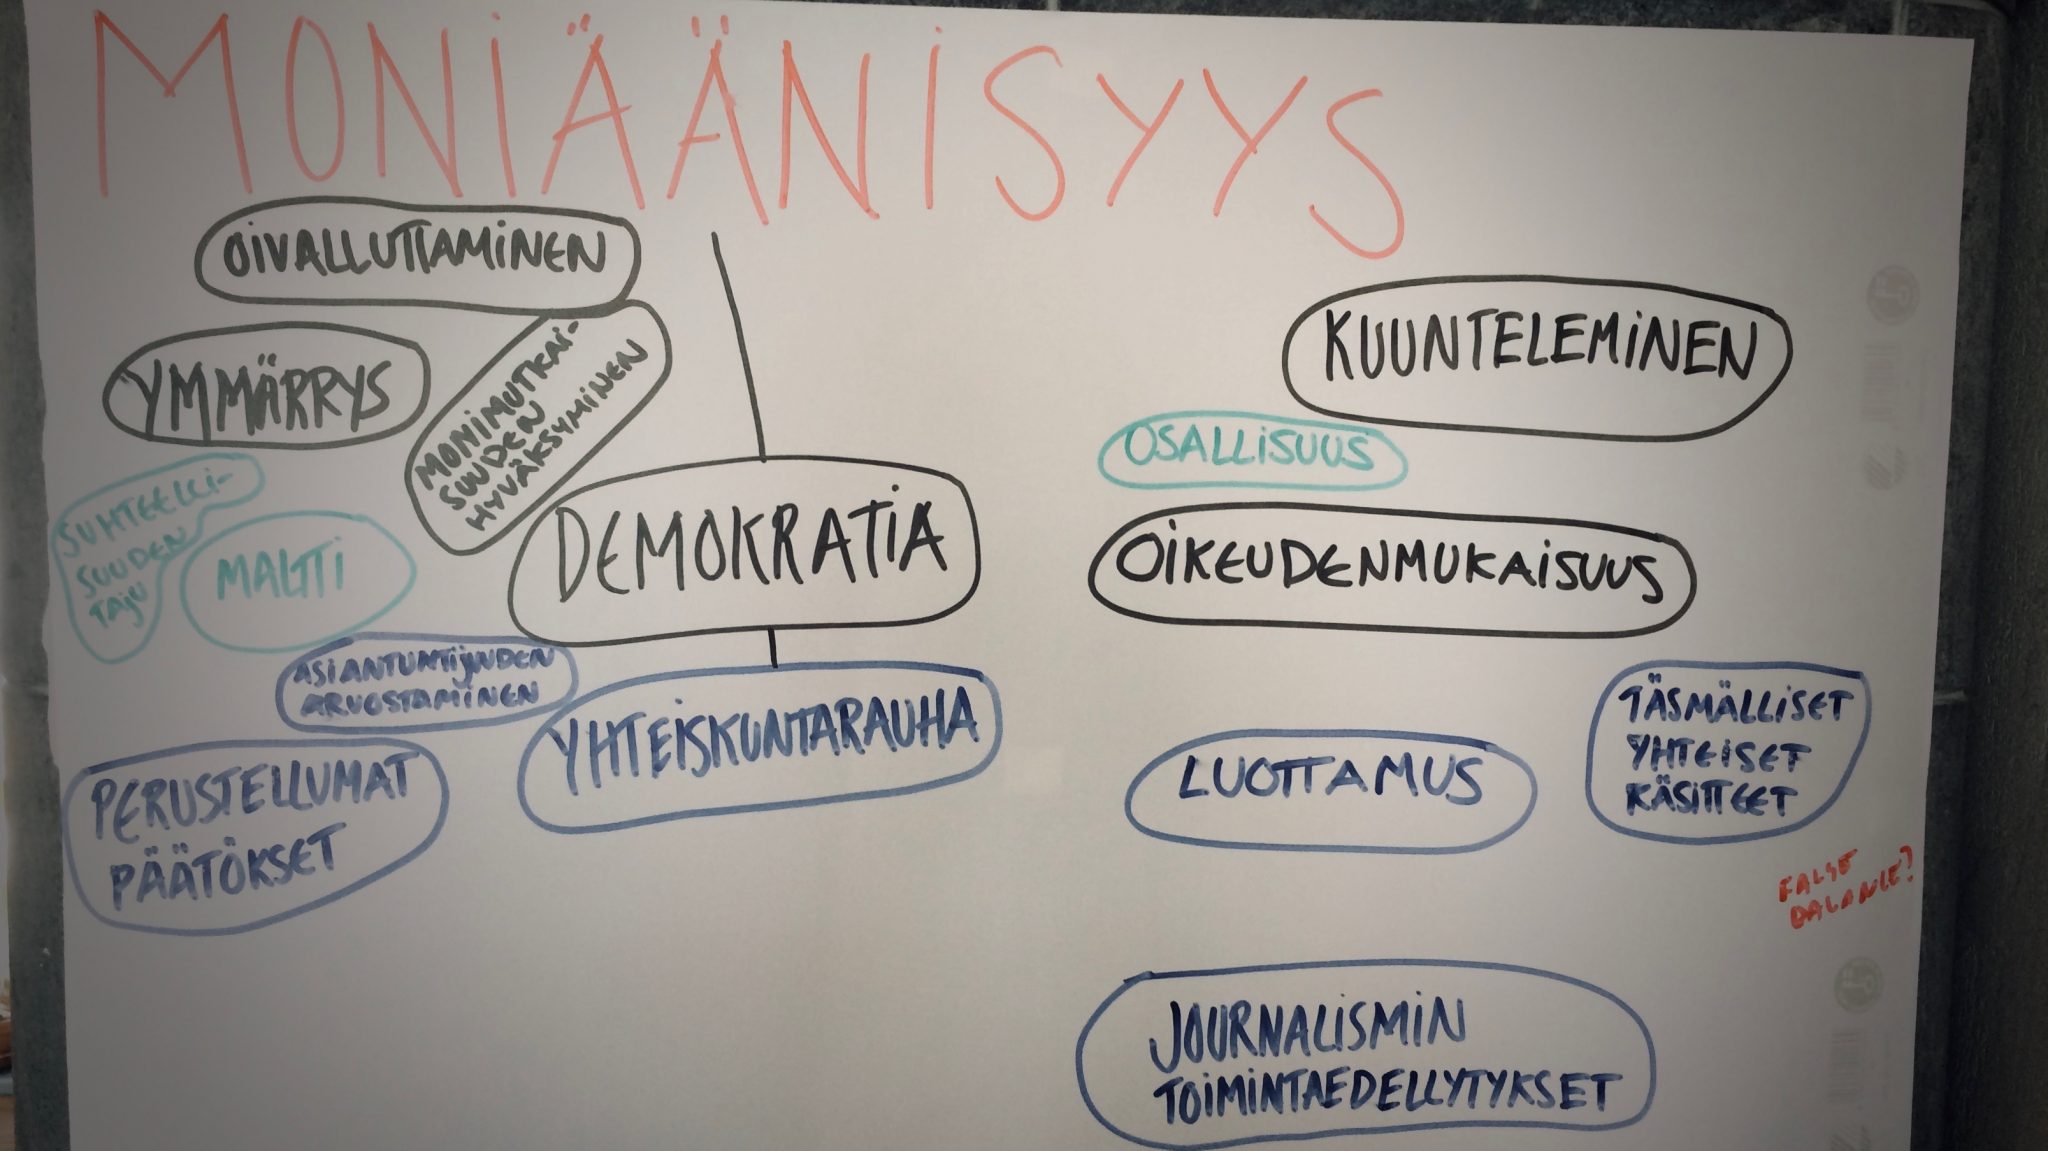 MONIÄÄNISYYS
OIVALLUTTAMINEN
YMMÄRRYS
MONIMUTKAI-
SUUDEN
HYVÄKSYMINEN
KUUNTELEMINEN
OSALLISUUS
SUHTEELLI-
SUUDEN
TAJU
MALTTI
DEMOKRATIA
OIKEUDENMUKAISUUS
ASIANTUNTIJUUDEN
ARVOSTAMINEN
YHTEISKUNTARAUHA
PERUSTELLUMAT
PÄÄTÖKSET
LUOTTAMUS
TÄSMÄLLISET
YHTEISET
KÄSITTEET
FALSE
BALANCE?
JOURNALISMIN
TOIMINTAEDELLYTYKSET